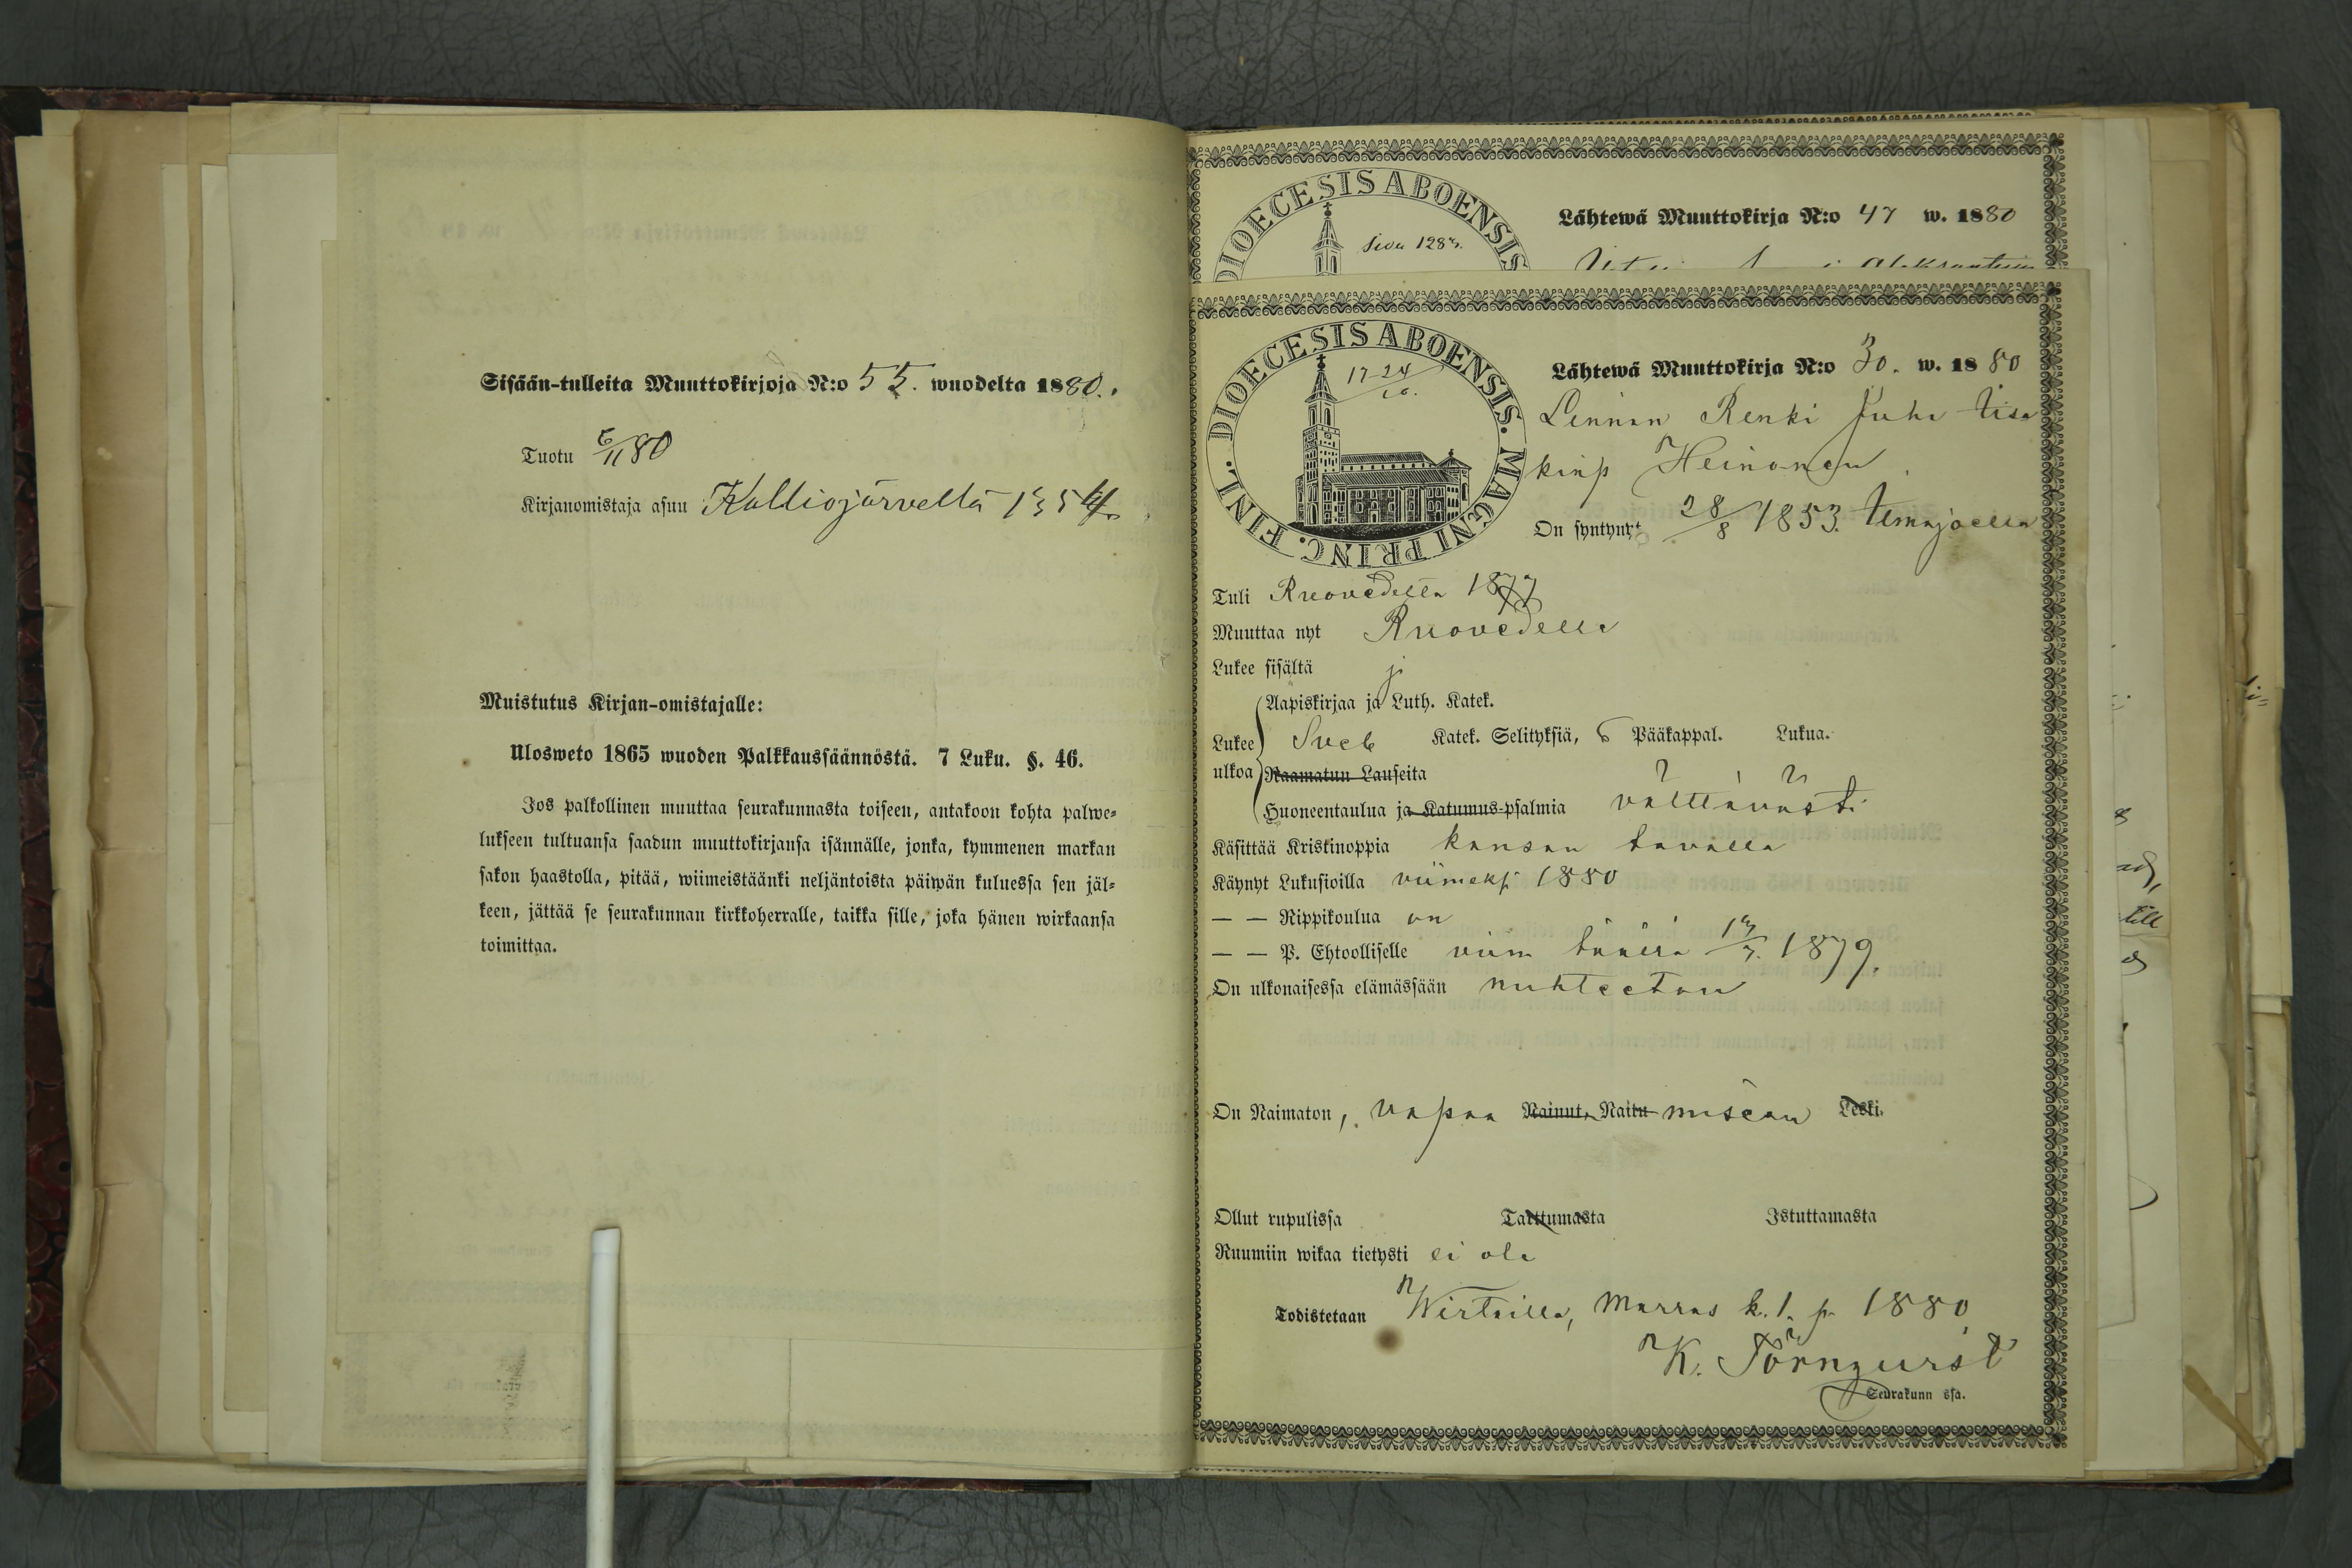 Sisään-tulleita Muuttokirjoja N:o 55. wuodelta 1880.
Tuotu 6/11 80
Kirjanomistaja asuu Kalliojärvellä
Muistutus Kirjan-omistajalle:
Ulosweto 1865 wuoden Palkkaussäännöstä. 7 Luku. §. 46.
Jos palkollinen muuttaa seurakunnasta toiseen, antakoon kohta palwe-
lukseen tultuansa saadun muuttokirjansa isännälle, jonka, kymmenen markan
sakon haastolla, pitää, wiimeistäänki neljäntoista päiwän kuluessa sen jäl-
keen, jättää se seurakunnan kirkkoherralle, taikka sille, joka hänen wirkaansa
toimittaa.
DIOECESIS ABOENSIS
Sivu
Lähtewä Muuttokirja N:o 47 w. 1880
DIOECESIS ABOENSIS. MAGNI PRINC. FINL.
Lähtewä Muuttokirja N:o 30. w. 1880
Linnan Renki Juho Iisa
kinp Heinonen
On syntynyt 28/8 1853. Ilmajoella
Tuli Ruovedeltä 1877
Muuttaa nyt Ruovedelle
Lukee sisältä j
Aapiskirjaa ja Luth. Katek.
Lukee Sveb Katek. Selityksiä, 6 Pääkappal. Lukua.
ulkoa Raamatun Lauseita
Huoneentaulua ja Katumus-psalmia välttävästi
Käsittää Kristinoppia kansan tavalla
Käynyt Lukusioilla viimeksi 1880
— — Rippikoulua on
— — P. Ehtoolliselle viim täällä 1879.
On ulkonaisessa elämässään nuhteeton
On Naimaton, vapaa Nainut, Naitu miseen Leski.
Ollut rupulissa Tarttumasta Istuttamasta
Ruumiin wikaa tietysti ei ole
Todistetaan Wirtailla, Marras k. 1. p. 1880
K. Törnqvist
Seurakunn ssa.
till